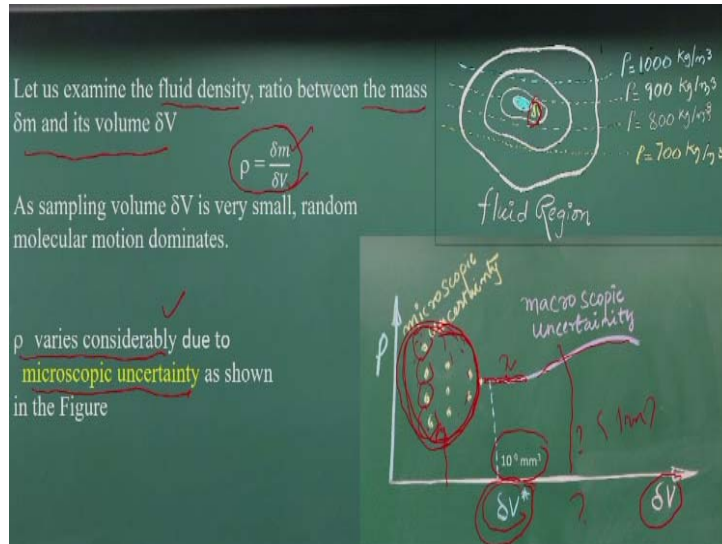 Let us examine the fluid density, ratio between the mass
δm and its volume δV
ρ = δm/δV
As sampling volume δV is very small, random
molecular motion dominates.
ρ varies considerably due to
microscopic uncertainty as shown
in the Figure
ρ=1000 kg/m³
ρ=900 kg/m³
ρ=800 kg/m³
ρ=700 kg/m³
fluid Region
microscopic
uncertainty
macroscopic
uncertainity
ρ
?
?
δV*
δV